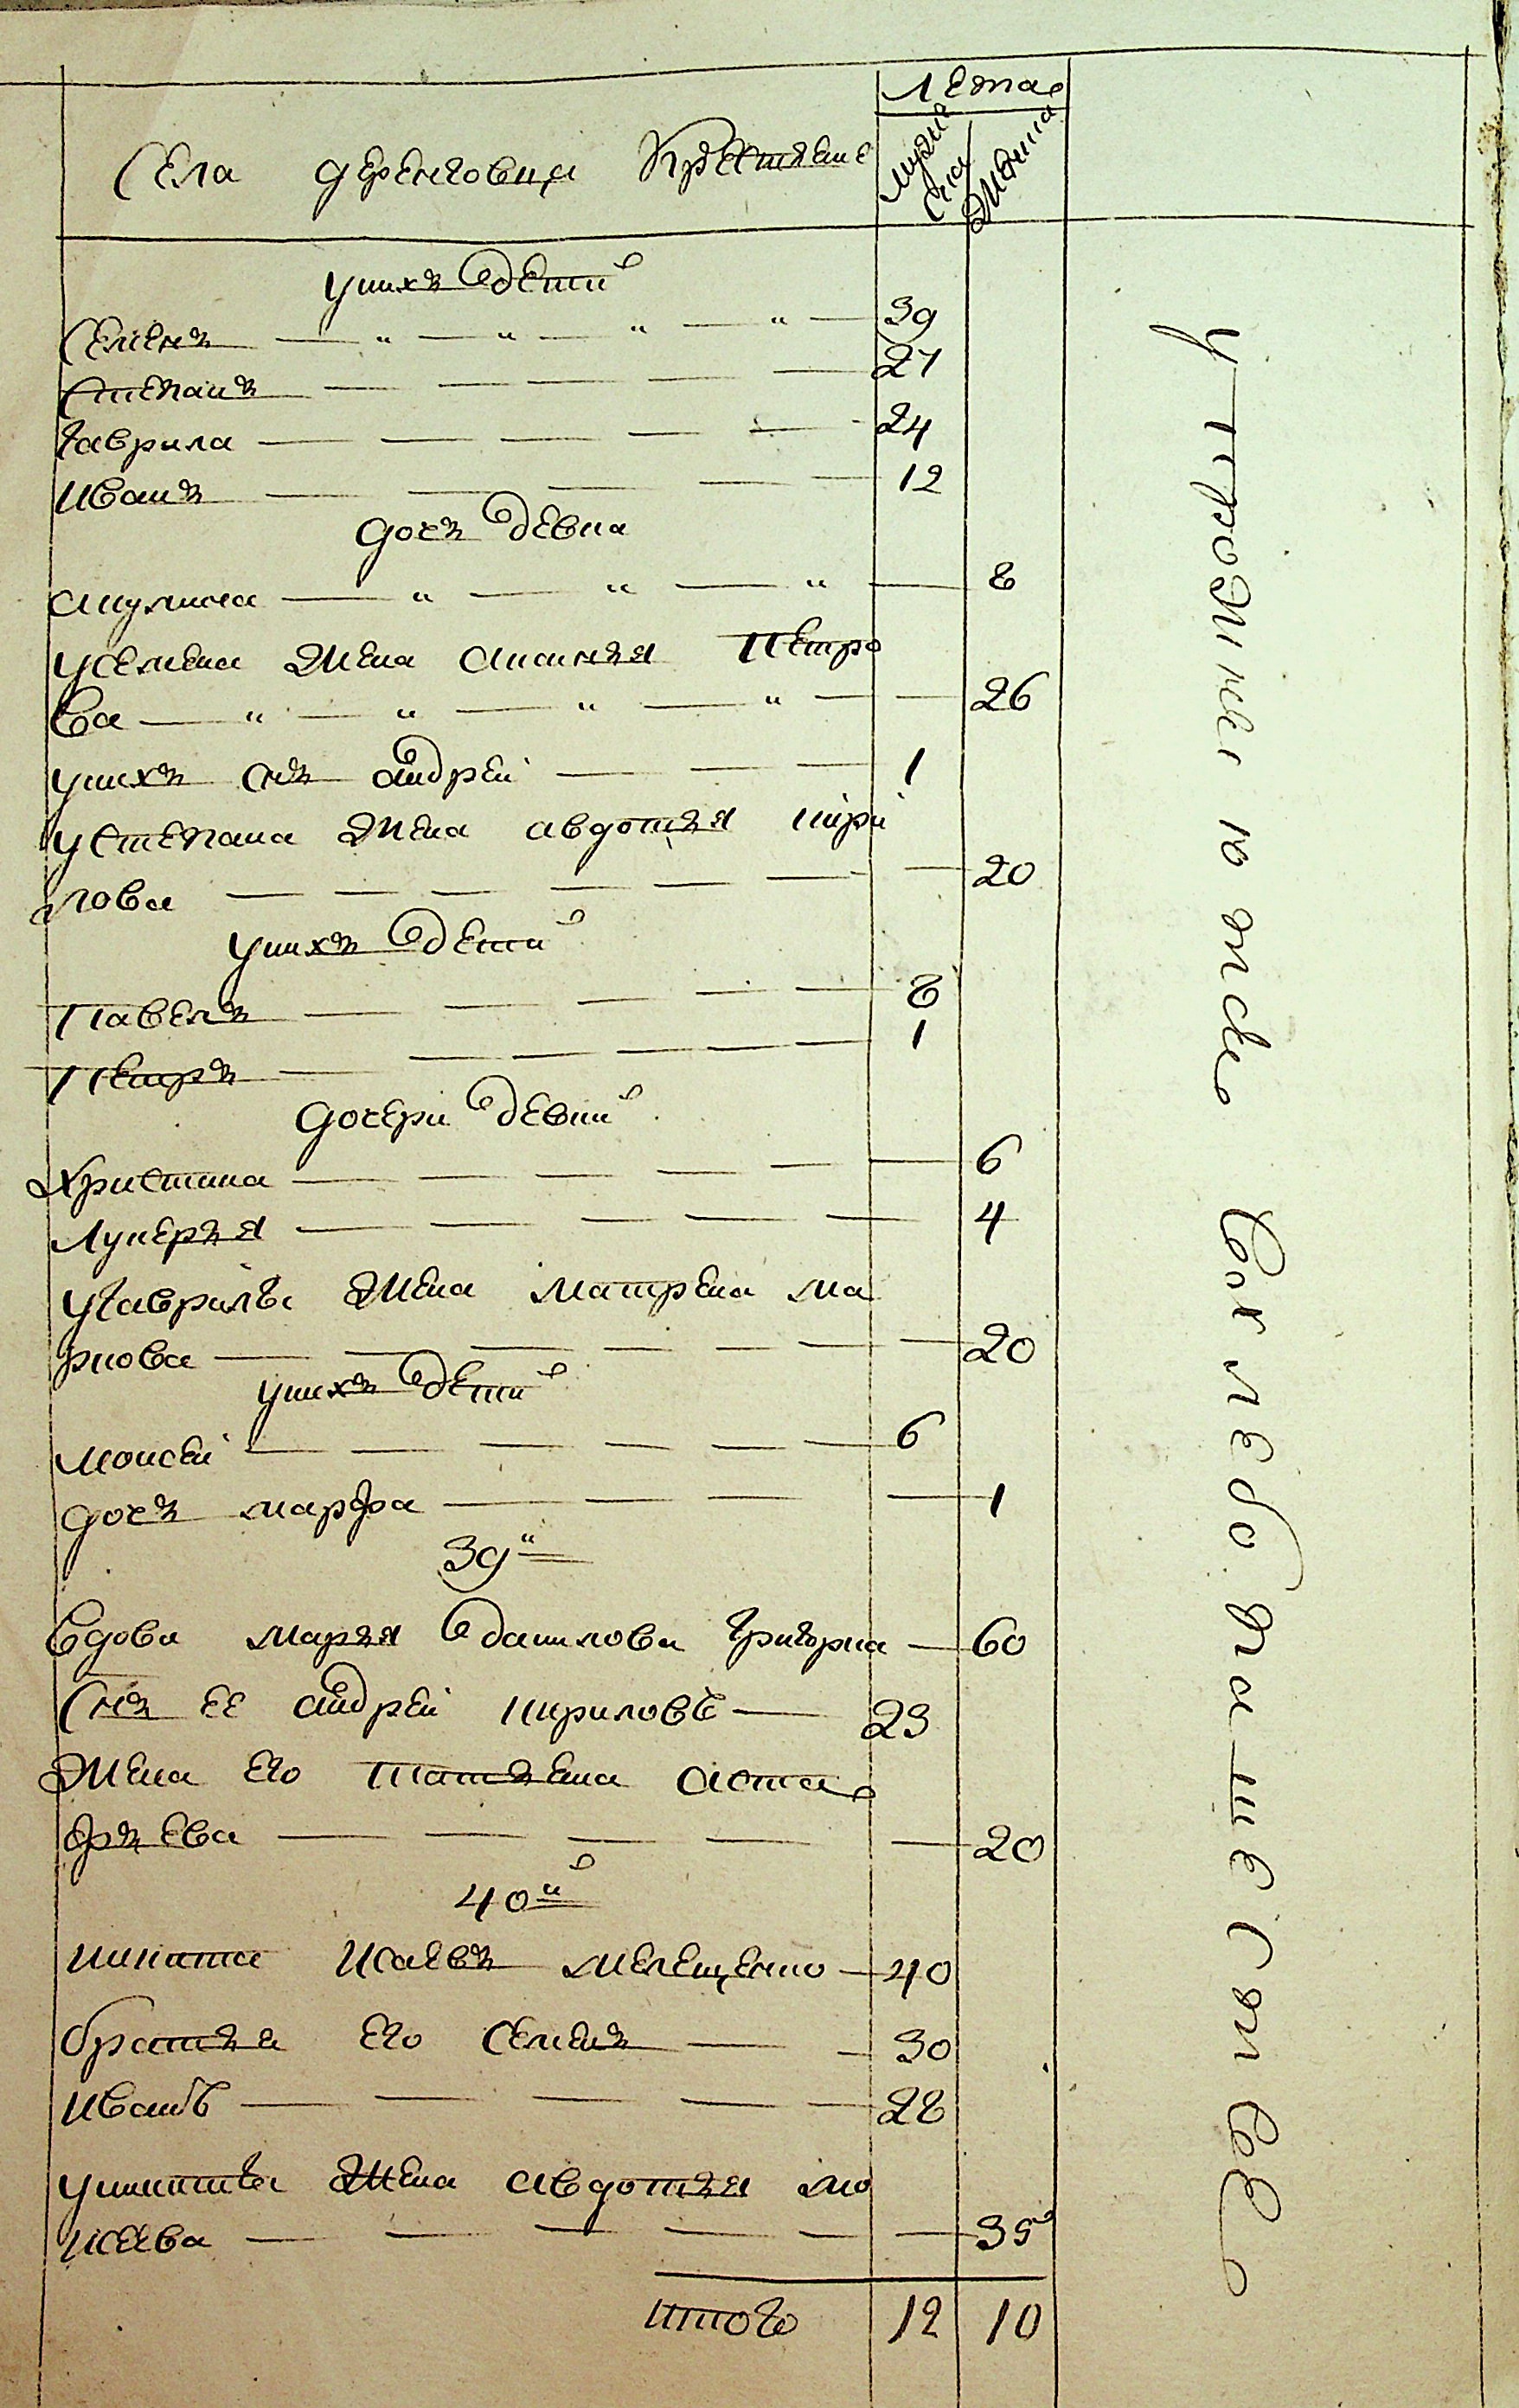 Лета
Села Деренговца крестяне
мужеска
женска
у них дети
Семенъ 39
Степанъ 27
Гаврила 24
Иванъ 12
дочь девка
акулина 8
У семена жена анания петро
ва 26
у них снъ андрей 1
У степана жена авдотья кири
лова 20
у них дети
Павелъ 8
Петръ 1
дочери девки
Христина 6
Лукерья 4
У гаврилы жена матрена ма
ркова 20
у них дети
моисей 6
дочь марфа 1
39й
вдова марья данилова 60
снъ ее андрей кириловъ 23
жена его татьяна аста
фьева 20
40й
никита исаевъ мелещенко 40
братья его семенъ 30
иванъ 28
у никиты жена авдотья мо
исеева 35
итого 12 10